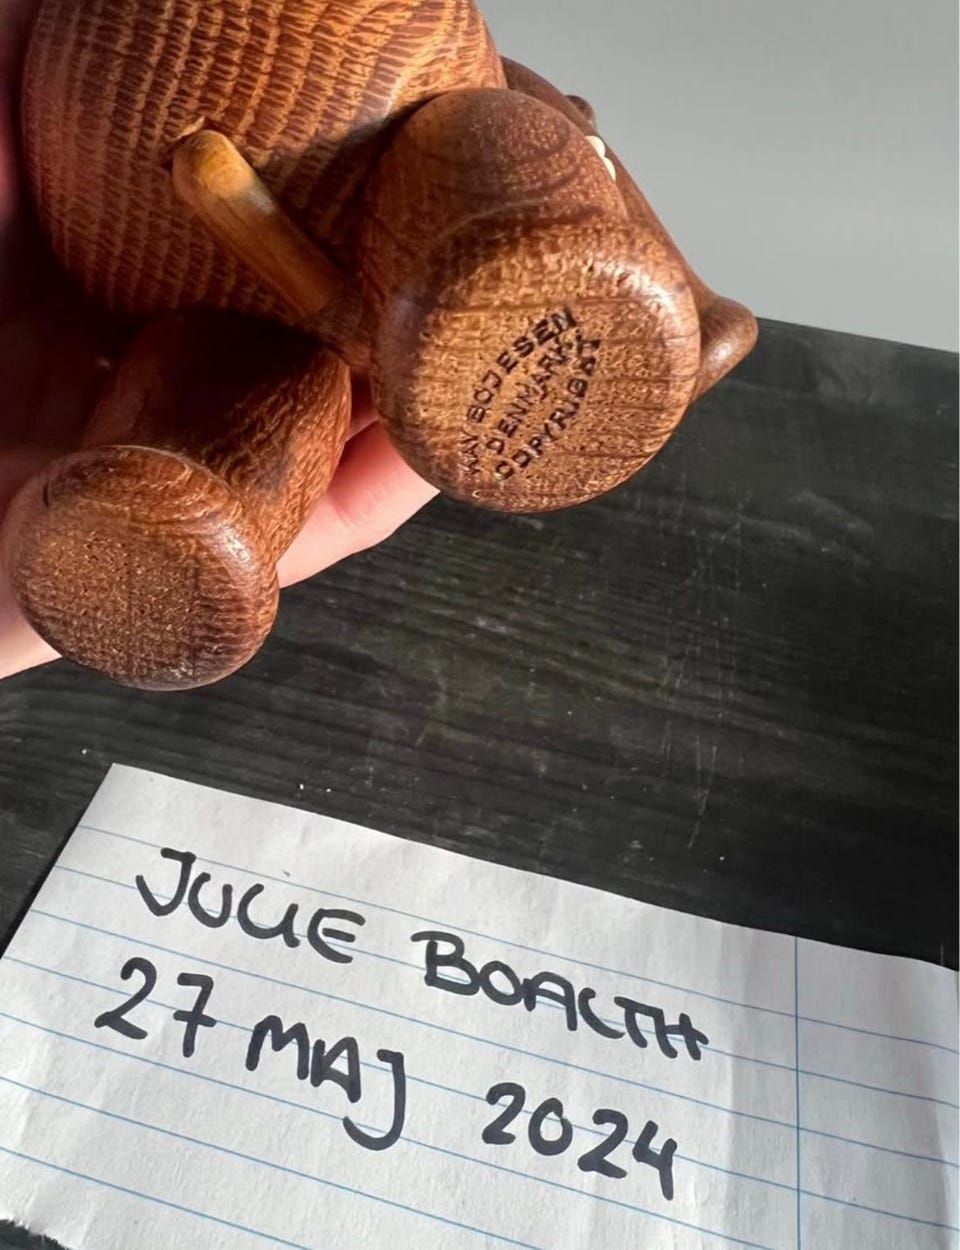 KAY BOJESEN
DENMARK
COPYRIGHT
JULIE BOALTH
27 MAJ 2024